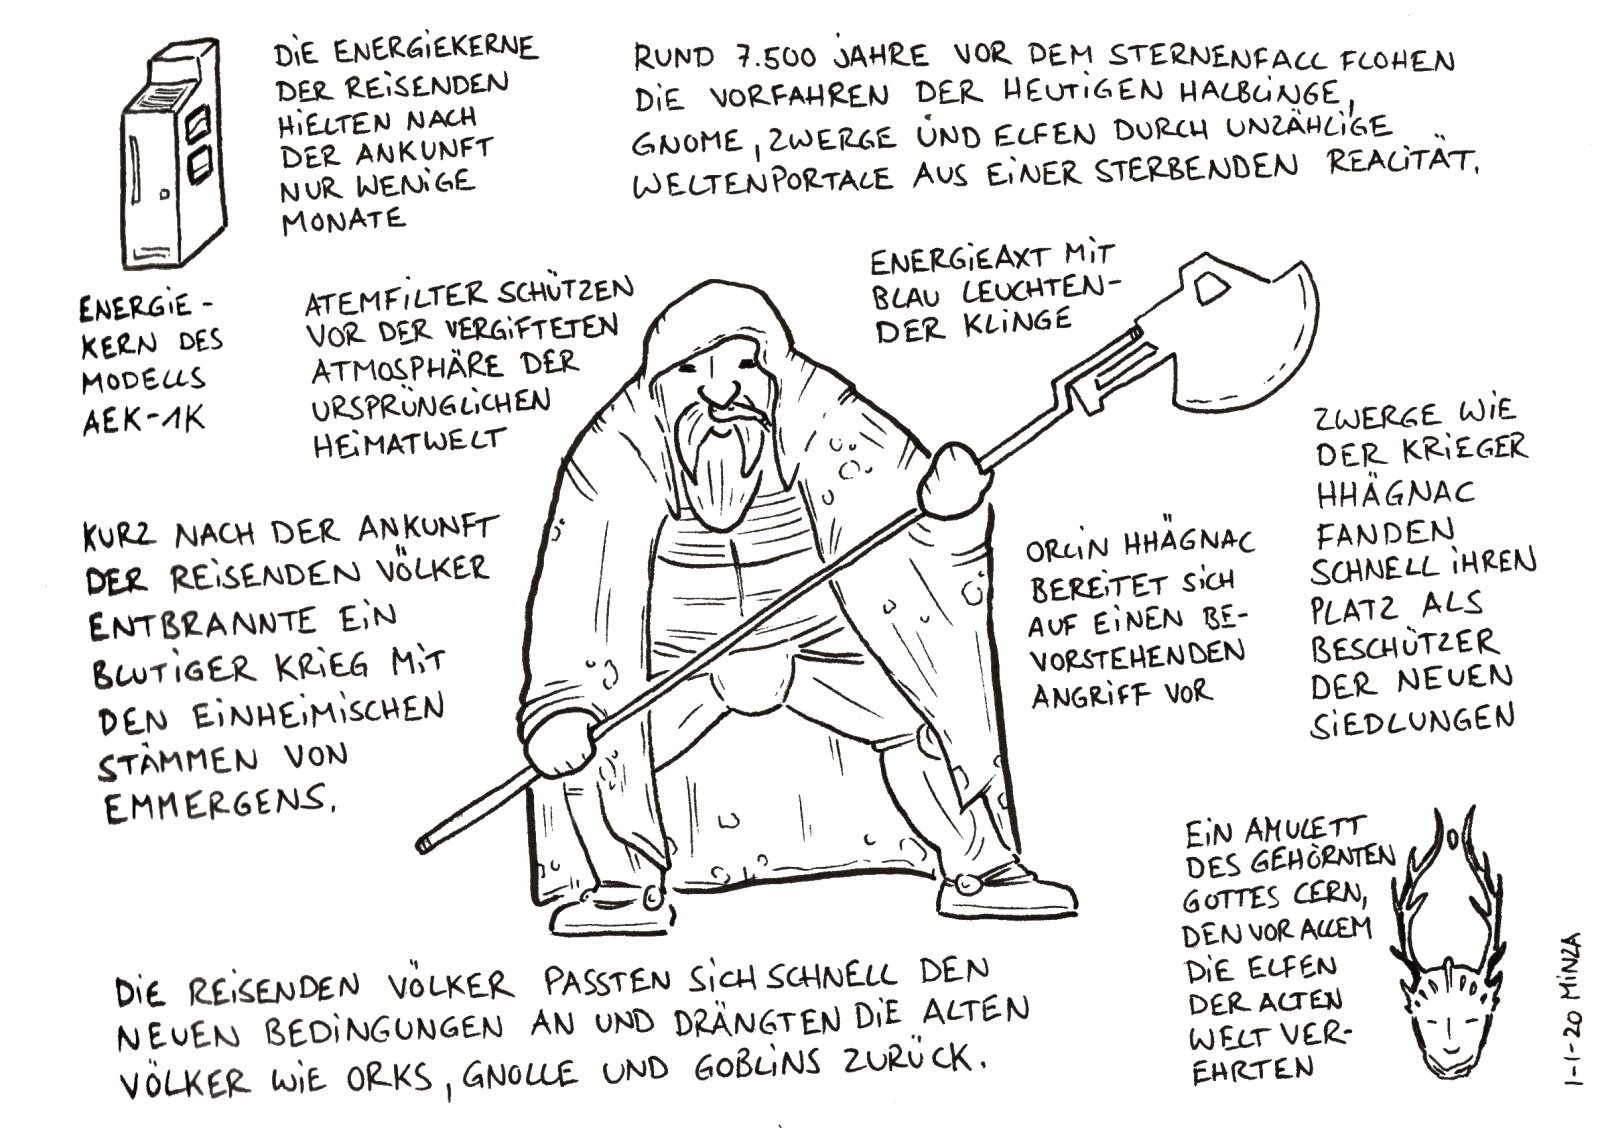 DIE ENERGIEKERNE
DER REISENDEN
HIELTEN NACH
DER ANKUNFT
NUR WENIGE
MONATE
RUND 7.500 JAHRE VOR DEM STERNENFALL FLOHEN
DIE VORFAHREN DER HEUTIGEN HALBLINGE,
GNOME, ZWERGE UND ELFEN DURCH UNZÄHLIGE
WELTENPORTALE AUS EINER STERBENDEN REALITÄT.
ENERGIE-
KERN DES
MODELLS
AEK-1K
ATEMFILTER SCHÜTZEN
VOR DER VERGIFTETEN
ATMOSPHÄRE DER
URSPRÜNGLICHEN
HEIMATWELT
ENERGIEAXT MIT
BLAU LEUCHTEN-
DER KLINGE
KURZ NACH DER ANKUNFT
DER REISENDEN VÖLKER
ENTBRANNTE EIN
BLUTIGER KRIEG MIT
DEN EINHEIMISCHEN
STÄMMEN VON
EMMERGENS.
ORLIN HHÄGNAC
BEREITET SICH
AUF EINEN BE-
VORSTEHENDEN
ANGRIFF VOR
ZWERGE WIE
DER KRIEGER
HHÄGNAC
FANDEN
SCHNELL IHREN
PLATZ ALS
BESCHÜTZER
DER NEUEN
SIEDLUNGEN
EIN AMULETT
DES GEHÖRNTEN
GOTTES CERN,
DEN VOR ALLEM
DIE ELFEN
DER ALTEN
WELT VER-
EHRTEN
DIE REISENDEN VÖLKER PASSTEN SICH SCHNELL DEN
NEUEN BEDINGUNGEN AN UND DRÄNGTEN DIE ALTEN
VÖLKER WIE ORKS, GNOLLE UND GOBLINS ZURÜCK.
1-1-20 MINZA